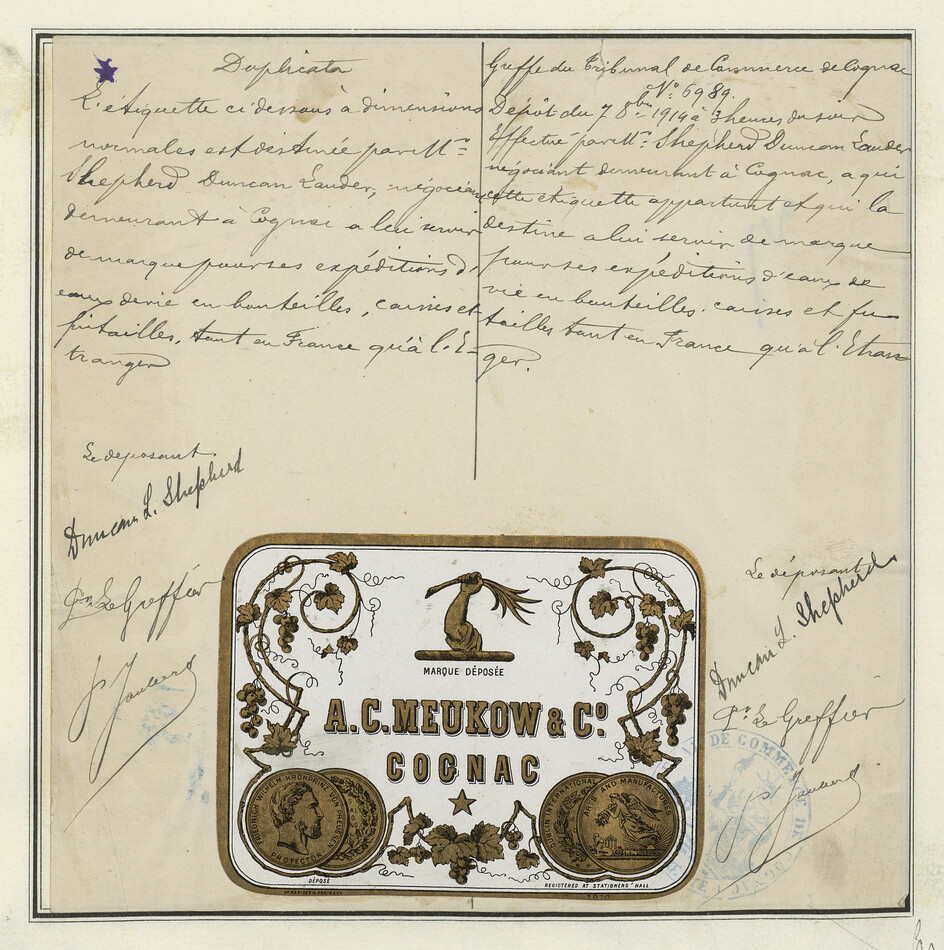 Duplicata
L'étiquette ci dessous à dimensions
normales est destinée par Mr
Shepherd Duncan Lauder, négociant
demeurant à Cognac a lui servir
de marque pour ses expéditions d'
eaux de vie en bouteilles, caisses et
futailles, tant en France qu'à l'E-
tranger
Le déposant
Duncan L. Shepherd
Pr. Le Greffier
Greffe du Tribunal de Commerce de Cognac
No 6989.
Dépôt du 7 8bre 1914 à 3 heures du soir
Effectué par Mr. Shepherd Duncan Lauder
négociant demeurant à Cognac, a qui
cette étiquette appartient et qui la
destine a lui servir de marque
pour ses expéditions d'eaux de
vie en bouteilles, caisses et fu-
tailles tant en France qu'à l'Etran-
ger.
Le déposant
Duncan L. Shepherd
Pr. Le Greffier
MARQUE DÉPOSÉE
A.C. MEUKOW & Co.
COGNAC
FRIEDRICH WILHELM KRONPRINZ VON PREUSSEN
PROTECTOR
DUBLIN INTERNATIONAL
ARTS AND MANUFACTURES
DÉPOSÉ
REGISTERED AT STATIONERS' HALL
DE COMME